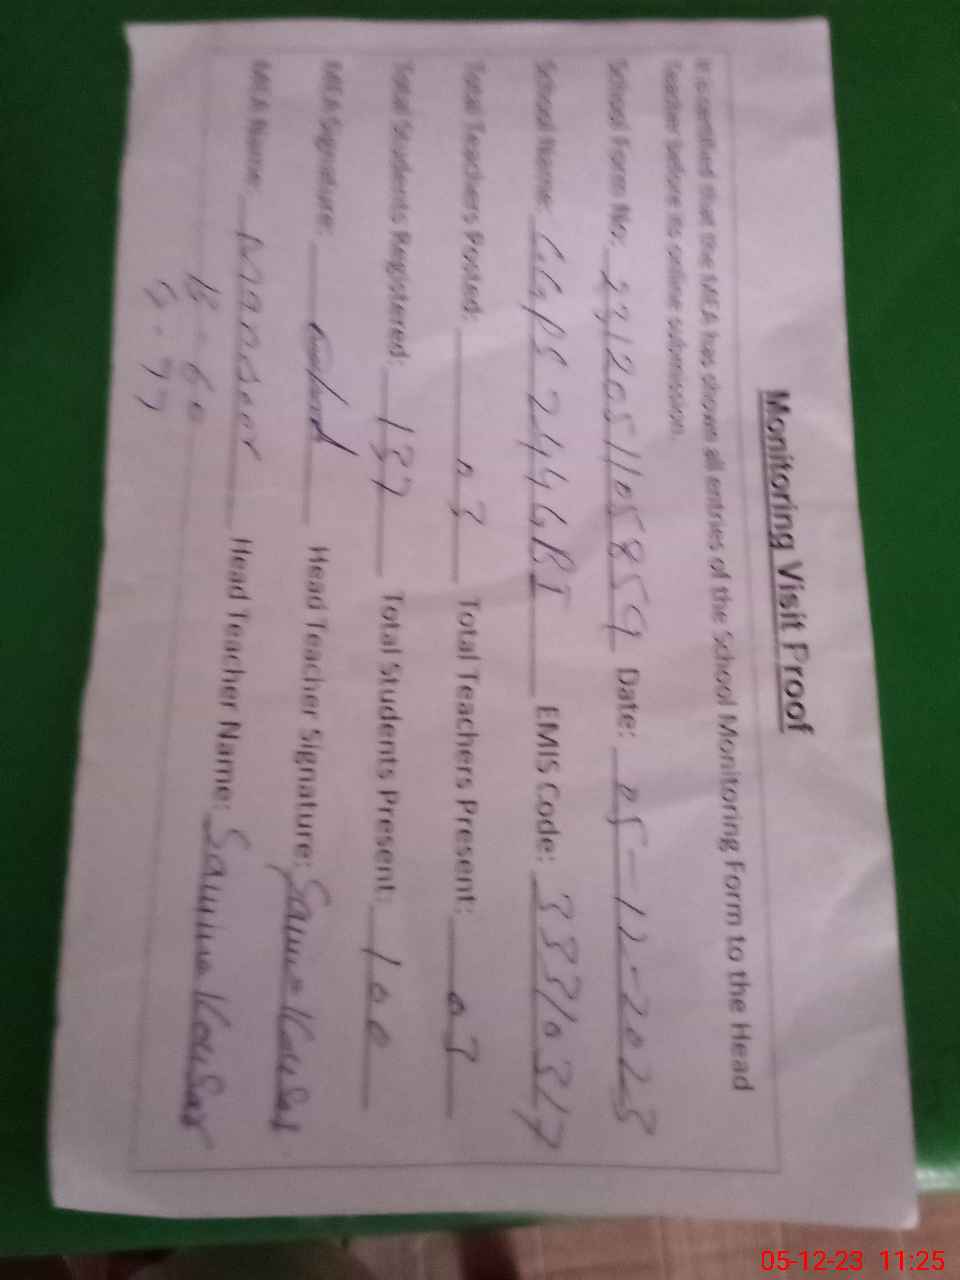 Monitoring Visit Proof
It is certified that the MEA has shown all entries of the School Monitoring Form to the Head
Teacher before its online submission.
School Form No: 2312051105859 Date: 05-12-2023
School Name: GGPS 244GBI EMIS Code:
Total Teachers Posted: 03 Total Teachers Present: 03
Total Students Registered: 137 Total Students Present: 100
MEA Signature: Head Teacher Signature: Saima Kousar
MEA Name: Mansoor Head Teacher Name: Saima Kousar
B - 60
G - 77
05-12-23 11:25